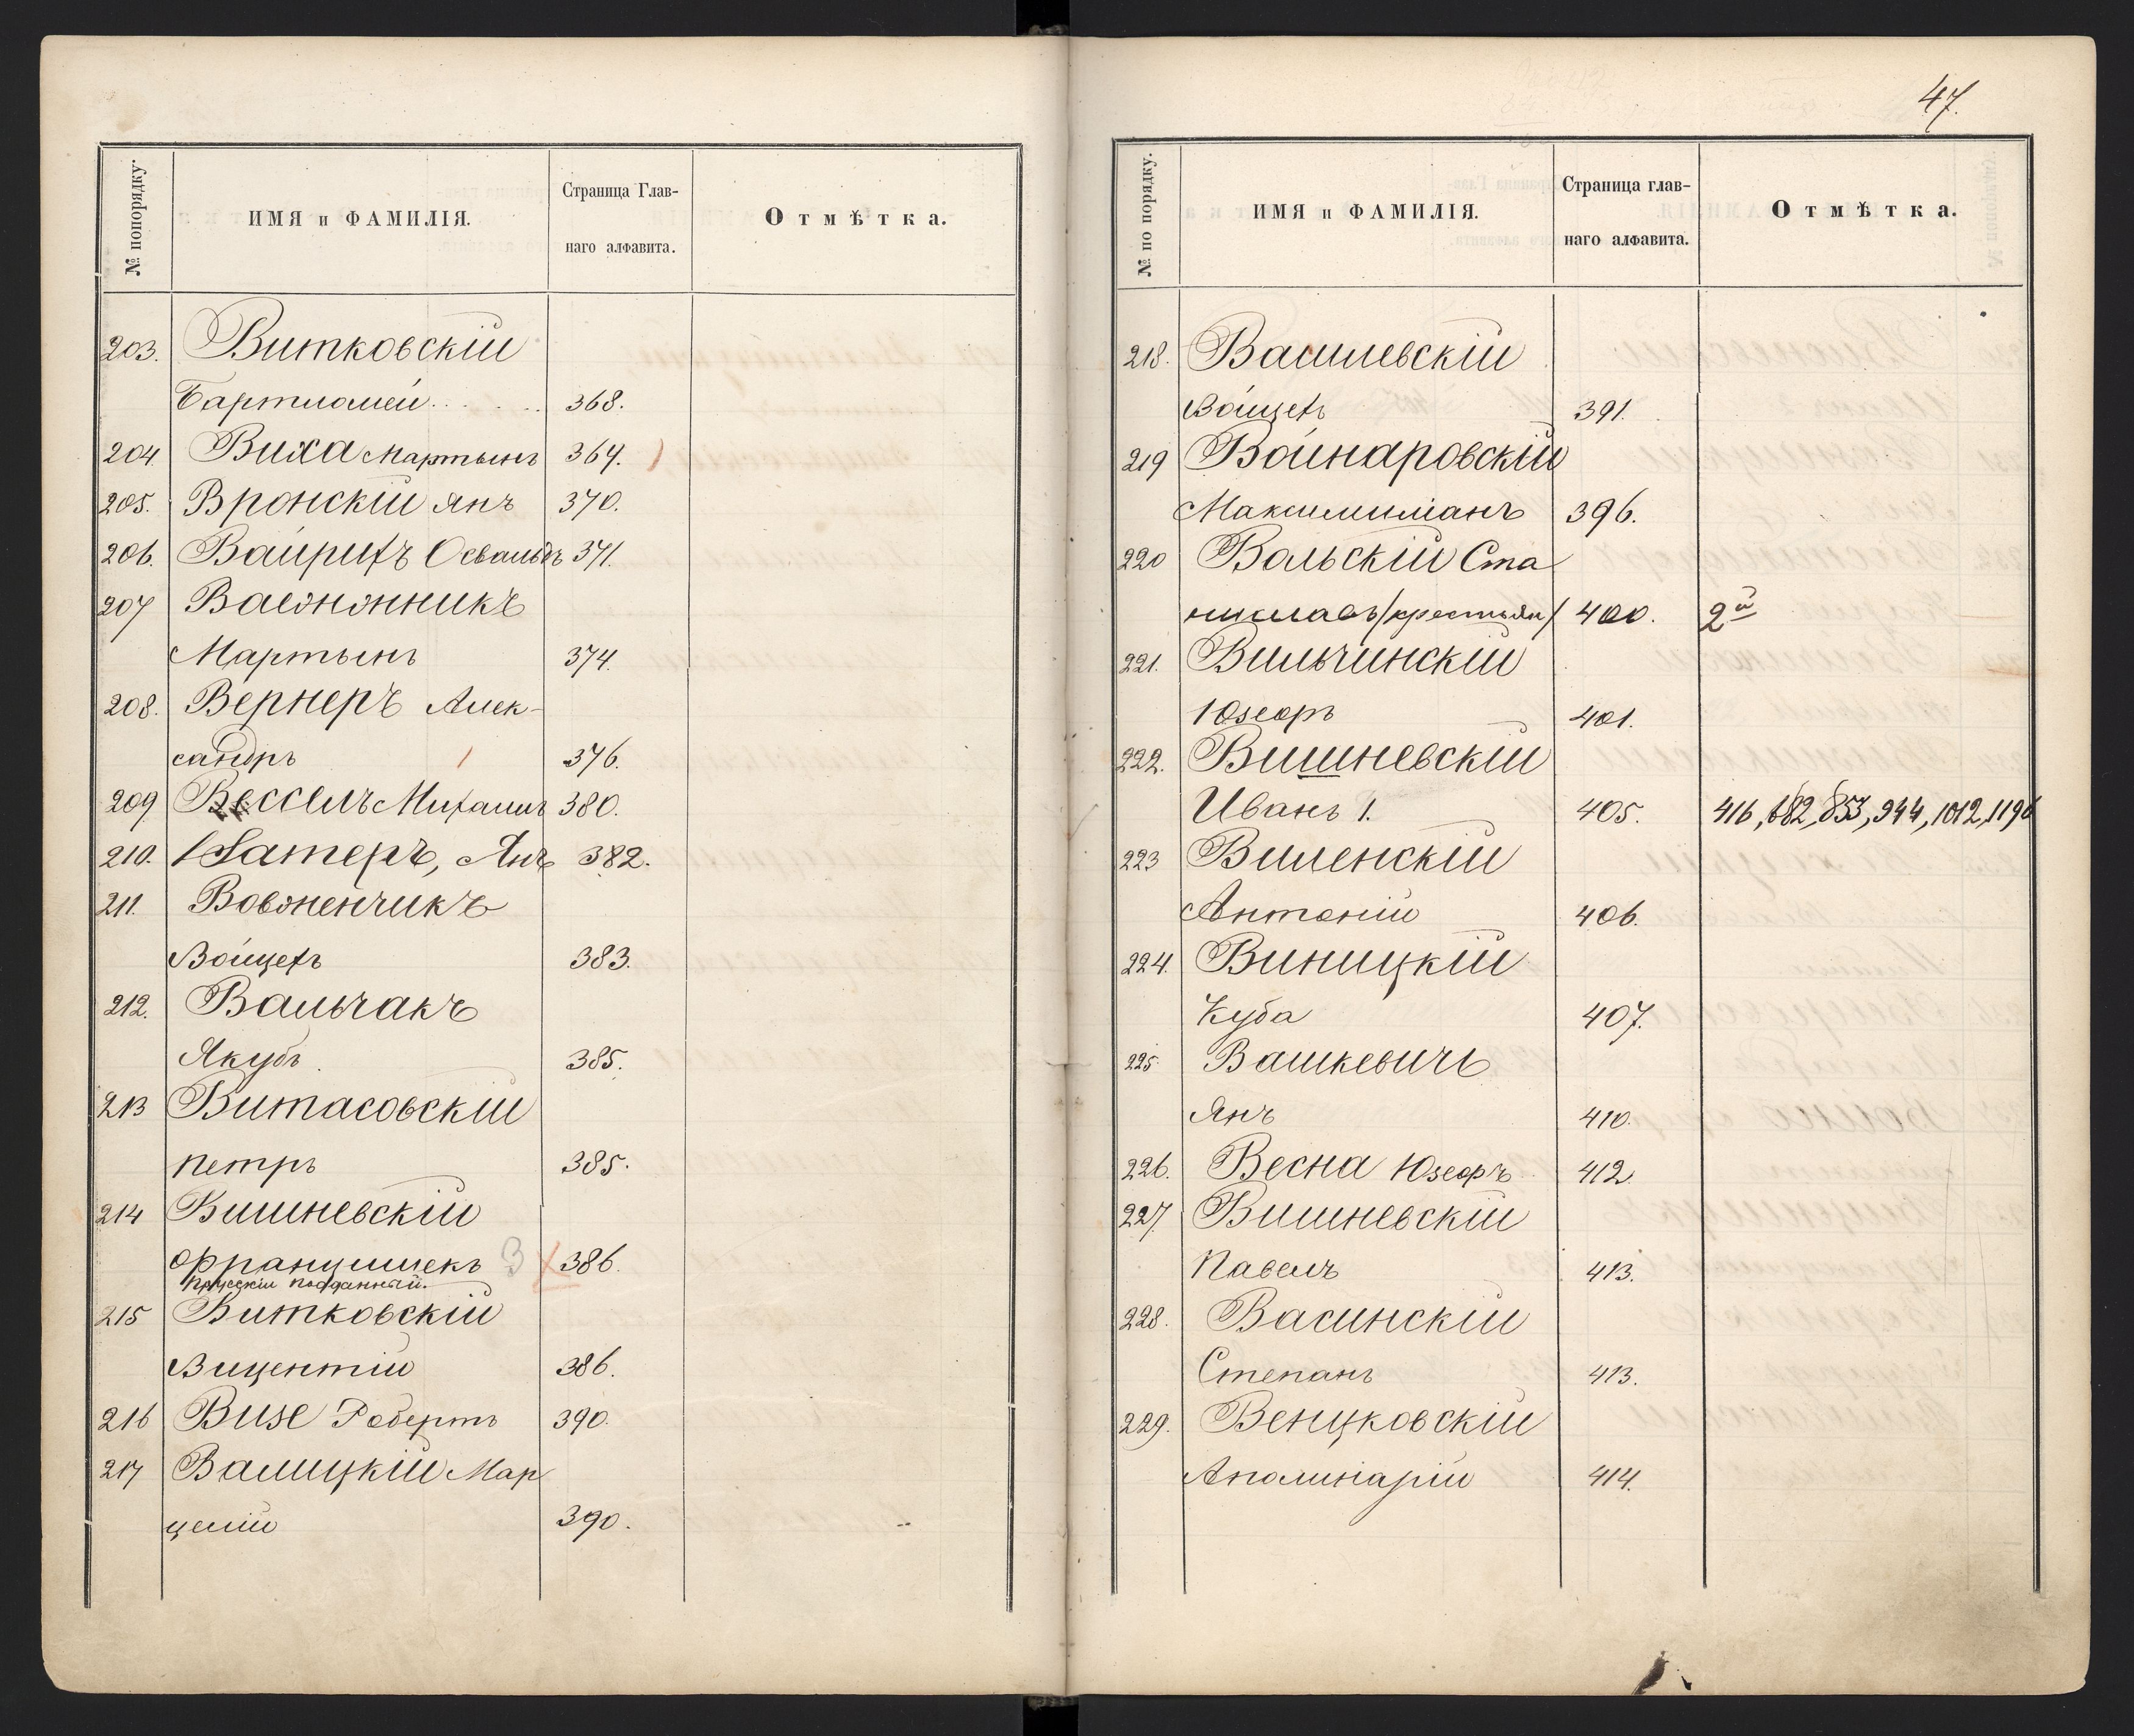 № попорядку.
ИМЯ и ФАМИЛІЯ.
Страница Глав-
наго алфавита.
Отмѣтка.
203. Витковскій
Бартломей . . . . . 368.
204 Виха Мартынъ 364.
205. Вронскій Янъ 370.
206. Вайрихъ Освальдъ 371.
207
Мартынъ 374.
208. Вернеръ Алек-
сандръ 376.
209 Вессель Михаилъ 380.
210. Ватеръ, Янъ 382.
211.
Войцехъ 383.
212. Вальчакъ
Якубъ 385.
213 Витасовскій
Петръ 385.
214 Вишневскій
Францишекъ 3 386.
Прусскій подданный.
215 Витковскій
Вицентій 386.
216 Визе Робертъ 390.
217 Валицкій Мар
целій 390.
47.
№ по порядку.
ИМЯ и ФАМИЛІЯ.
Страница глав-
наго алфавита.
Отмѣтка.
218. Василевскій
Войцехъ 391.
219 Войнаровскій
Максимиліанъ 396.
220 Вольскій Ста
ниславъ /крестьян/ 400. 2й
221. Вильчинскій
Юзефъ 401.
222. Вишневскій
Иванъ 1. 405. 416, 682, 853, 944, 1012, 1196
223 Виленскій
Антоній 406.
224. Виницкій
Куба 407.
225. Вашкевичъ
Янъ 410.
226. Весна Юзефъ 412
227. Вишневскій
Павелъ 413.
228. Васинскій
Степанъ 413.
229. Венцковскій
Аполинарій 414.